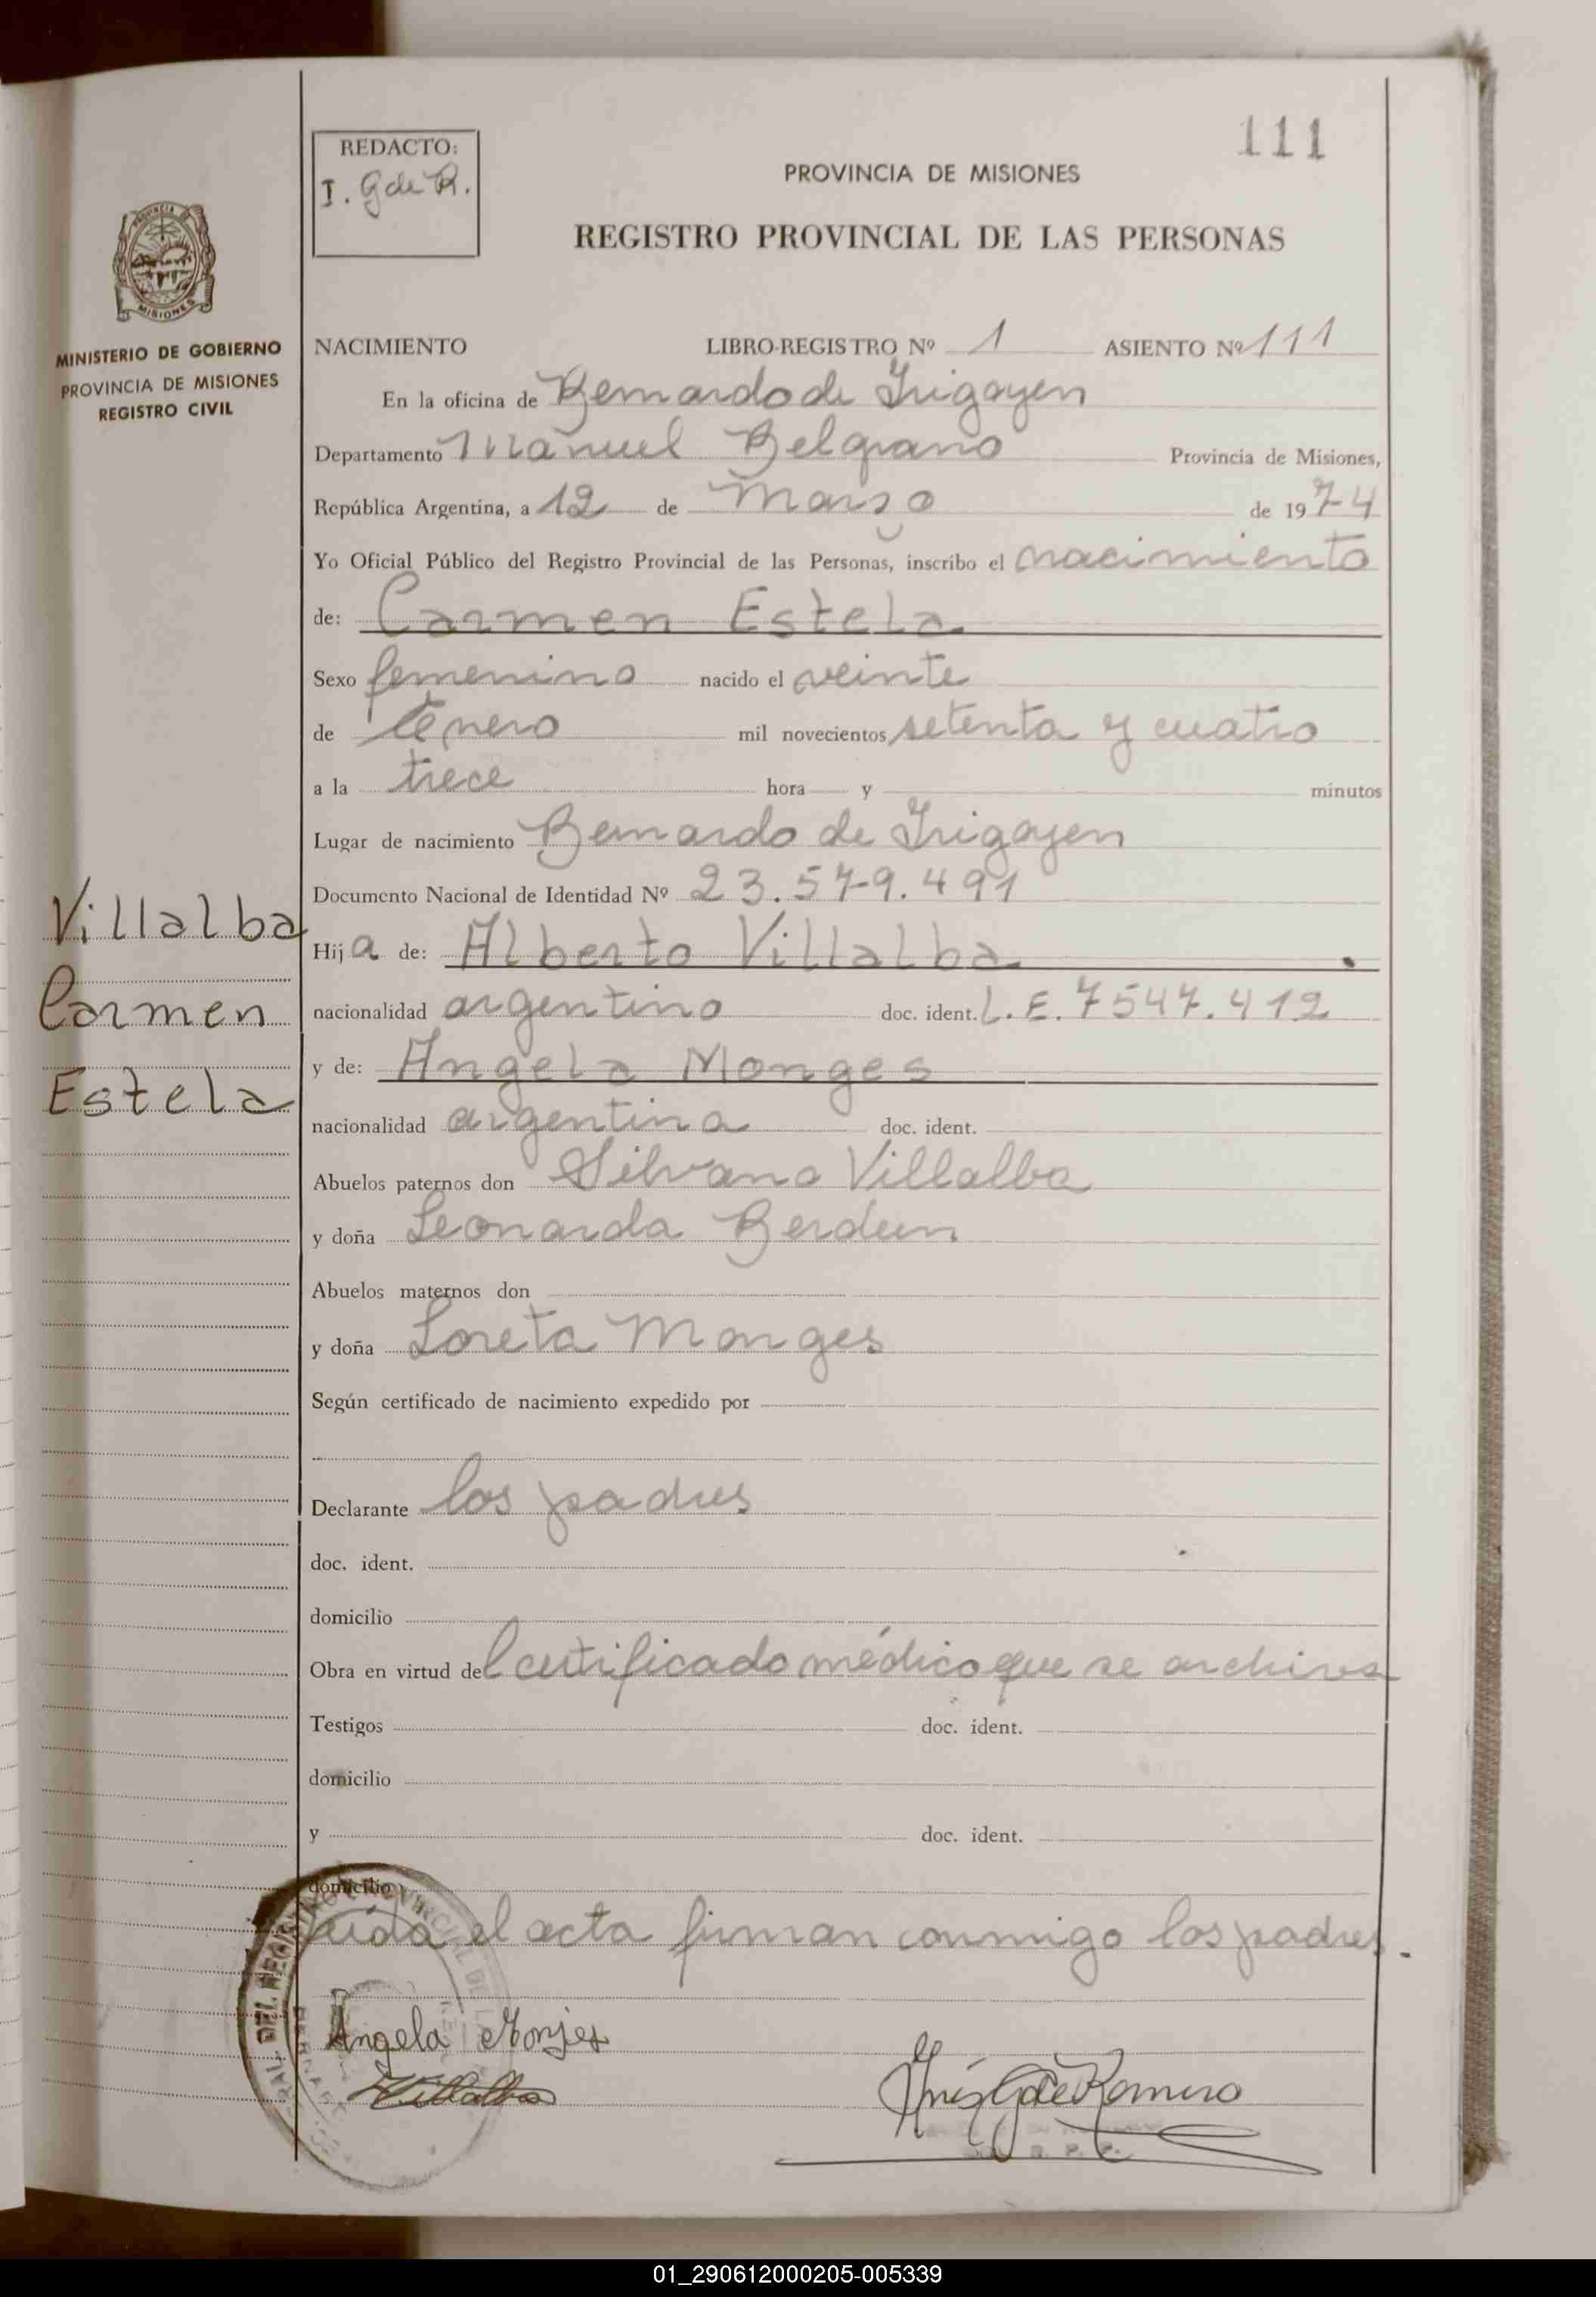 111
REDACTO:
I. G de R.
PROVINCIA DE MISIONES
REGISTRO PROVINCIAL DE LAS PERSONAS
MINISTERIO DE GOBIERNO
PROVINCIA DE MISIONES
REGISTRO CIVIL
NACIMIENTO LIBRO-REGISTRO Nº 1 ASIENTO Nº 111
En la oficina de Bernardo de Irigoyen
Departamento Manuel Belgrano Provincia de Misiones,
República Argentina, a 12 de Marzo de 1974
Yo Oficial Público del Registro Provincial de las Personas, inscribo el nacimiento
de: Carmen Estela
Sexo femenino nacido el veinte
de Enero mil novecientos setenta y cuatro
a la trece hora y minutos
Lugar de nacimiento Bernardo de Irigoyen
Documento Nacional de Identidad Nº 23.579.491
Villalba
Carmen
Estela
Hija de: Alberto Villalba
nacionalidad argentino doc. ident. L.E. 7547.412
y de: Angela Monges
nacionalidad argentina doc. ident.
Abuelos paternos don Silvano Villalba
y doña Leonarda Berdun
Abuelos maternos don
y doña Loreta Monges
Según certificado de nacimiento expedido por
Declarante los padres
doc. ident.
domicilio
Obra en virtud del certificado médico que se archiva
Testigos doc. ident.
domicilio
y doc. ident.
domicilio
Leída el acta firman conmigo los padres.
Angela Monjes
Villalba
Inés G de Romero
01_290612000205-005339